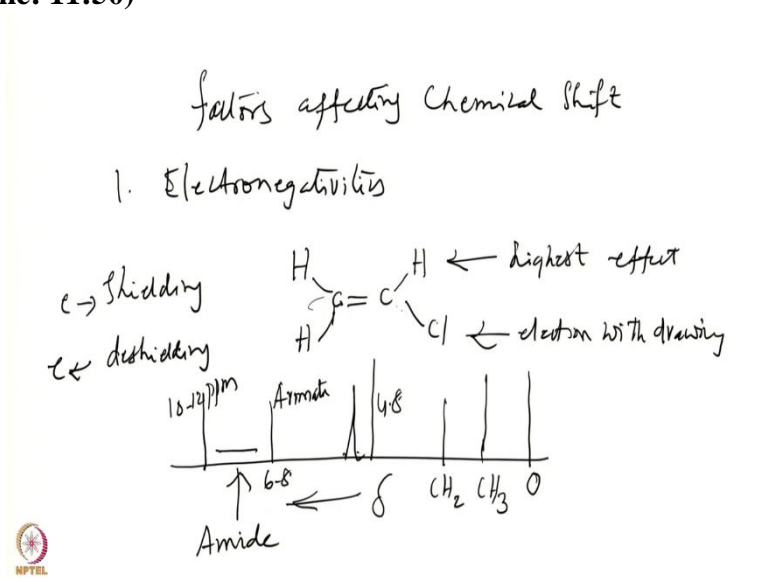 factors affecting Chemical Shift
1. Electronegativities
e→ Shielding
e← deshielding
H H ← highest effect
C = C
H Cl ← electron withdrawing
10-14 ppm Aromatic 4.8
6-8 ← δ CH2 CH3 0
↑
Amide
NPTEL